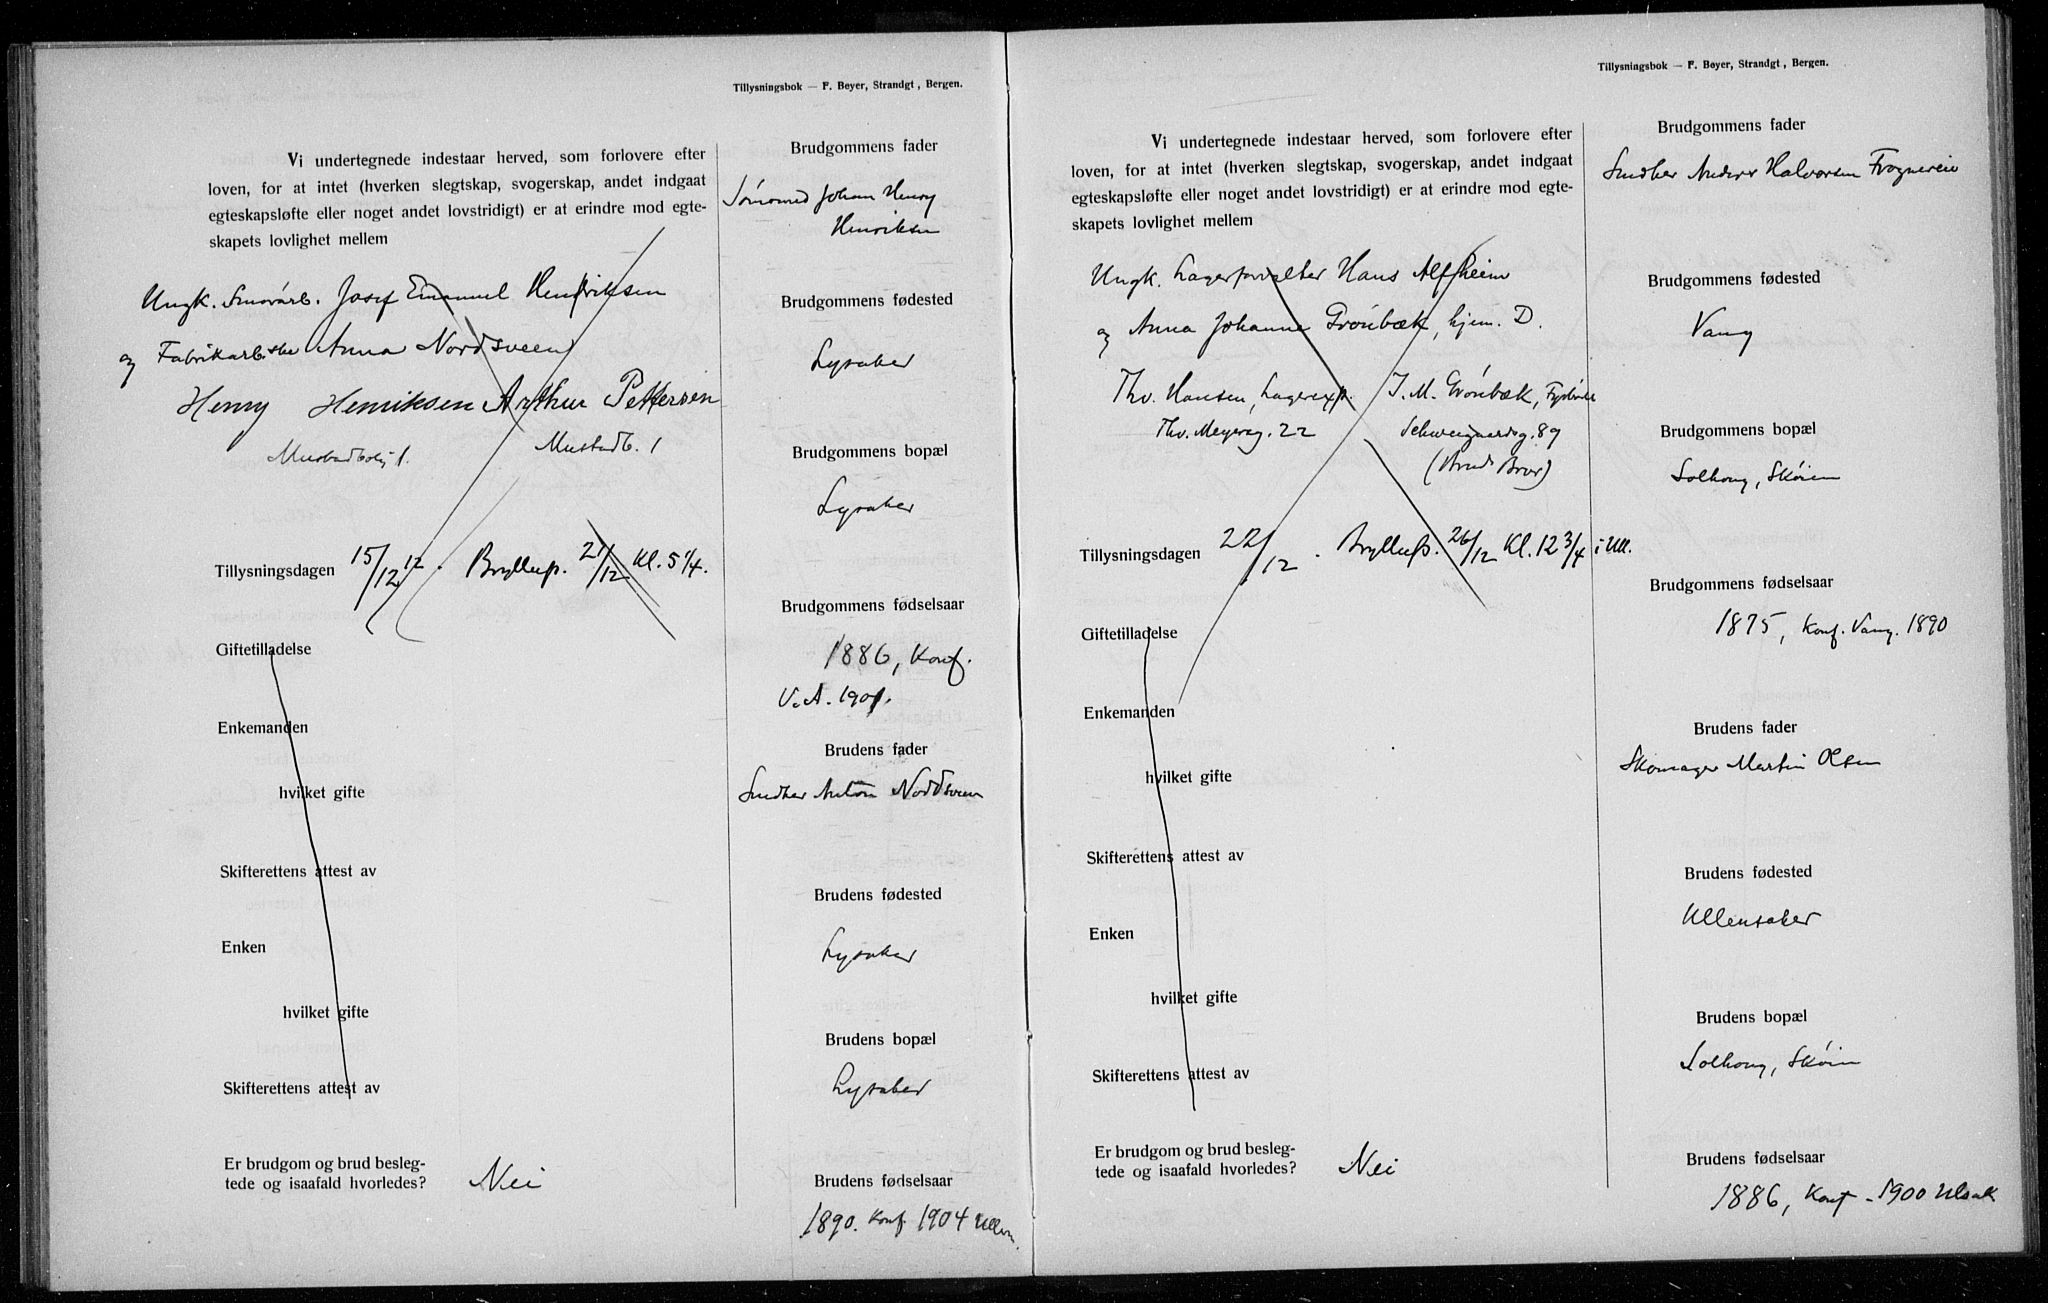 Tillysningsbok — F. Beyer, Strandgt, Bergen.
Vi undertegnede indestaar herved, som forlovere efter
loven, for at intet (hverken slegtskap, svogerskap, andet indgaat
egteskapsløfte eller noget andet lovstridigt) er at erindre mod egte-
skapets lovlighet mellem
Ungk. Josef Emanuel Hendriksen
og Fabrikarb.ske Anna Nordsveen
Henry Henriksen Arthur Pettersen
Mustadb. 1
Tillysningsdagen 15/12 12. Bryllup. 21/12 Kl. 5 1/4.
Giftetilladelse
Enkemanden
hvilket gifte
Skifterettens attest av
Enken
hvilket gifte
Skifterettens attest av
Er brudgom og brud besleg-
tede og isaafald hvorledes? Nei
Brudgommens fader
Johan Henry
Henriksen
Brudgommens fødested
Lysaker
Brudgommens bopæl
Lysaker
Brudgommens fødselsaar
1886, Konf.
V. A. 1901.
Brudens fader
Snedker Anton Nordsveen
Brudens fødested
Lysaker
Brudens bopæl
Lysaker
Brudens fødselsaar
1890. Konf. 1904 Ullern.
Tillysningsbok — F. Beyer, Strandgt, Bergen.
Vi undertegnede indestaar herved, som forlovere efter
loven, for at intet (hverken slegtskap, svogerskap, andet indgaat
egteskapsløfte eller noget andet lovstridigt) er at erindre mod egte-
skapets lovlighet mellem
Ungk. Lagerforvalter Hans Alfheim
og Anna Johanne Grönbæk, hjem. D.
Thv. Hansen, Lagerexp. J. M. Grönbæk,
Thv. Meyersg. 22 Schweigaardsg. 89
(Bruds Bror)
Tillysningsdagen 22/12. Bryllup. 26/12 Kl. 12 3/4 i Ull.
Giftetilladelse
Enkemanden
hvilket gifte
Skifterettens attest av
Enken
hvilket gifte
Skifterettens attest av
Er brudgom og brud besleg-
tede og isaafald hvorledes? Nei
Brudgommens fader
Snedker Anders Halvorsen Frognereie
Brudgommens fødested
Vang
Brudgommens bopæl
Solhoug, Skøien
Brudgommens fødselsaar
1875, Konf. Vang. 1890
Brudens fader
Skomager Martin Olsen
Brudens fødested
Ullensaker
Brudens bopæl
Solhoug, Skøien
Brudens fødselsaar
1886, Konf. 1900 Ulsak